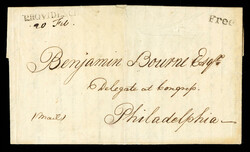 PROVIDENCE
20 Feb.
Free
Benjamin Bourne Esqr.
Delegate at Congress
Philadelphia